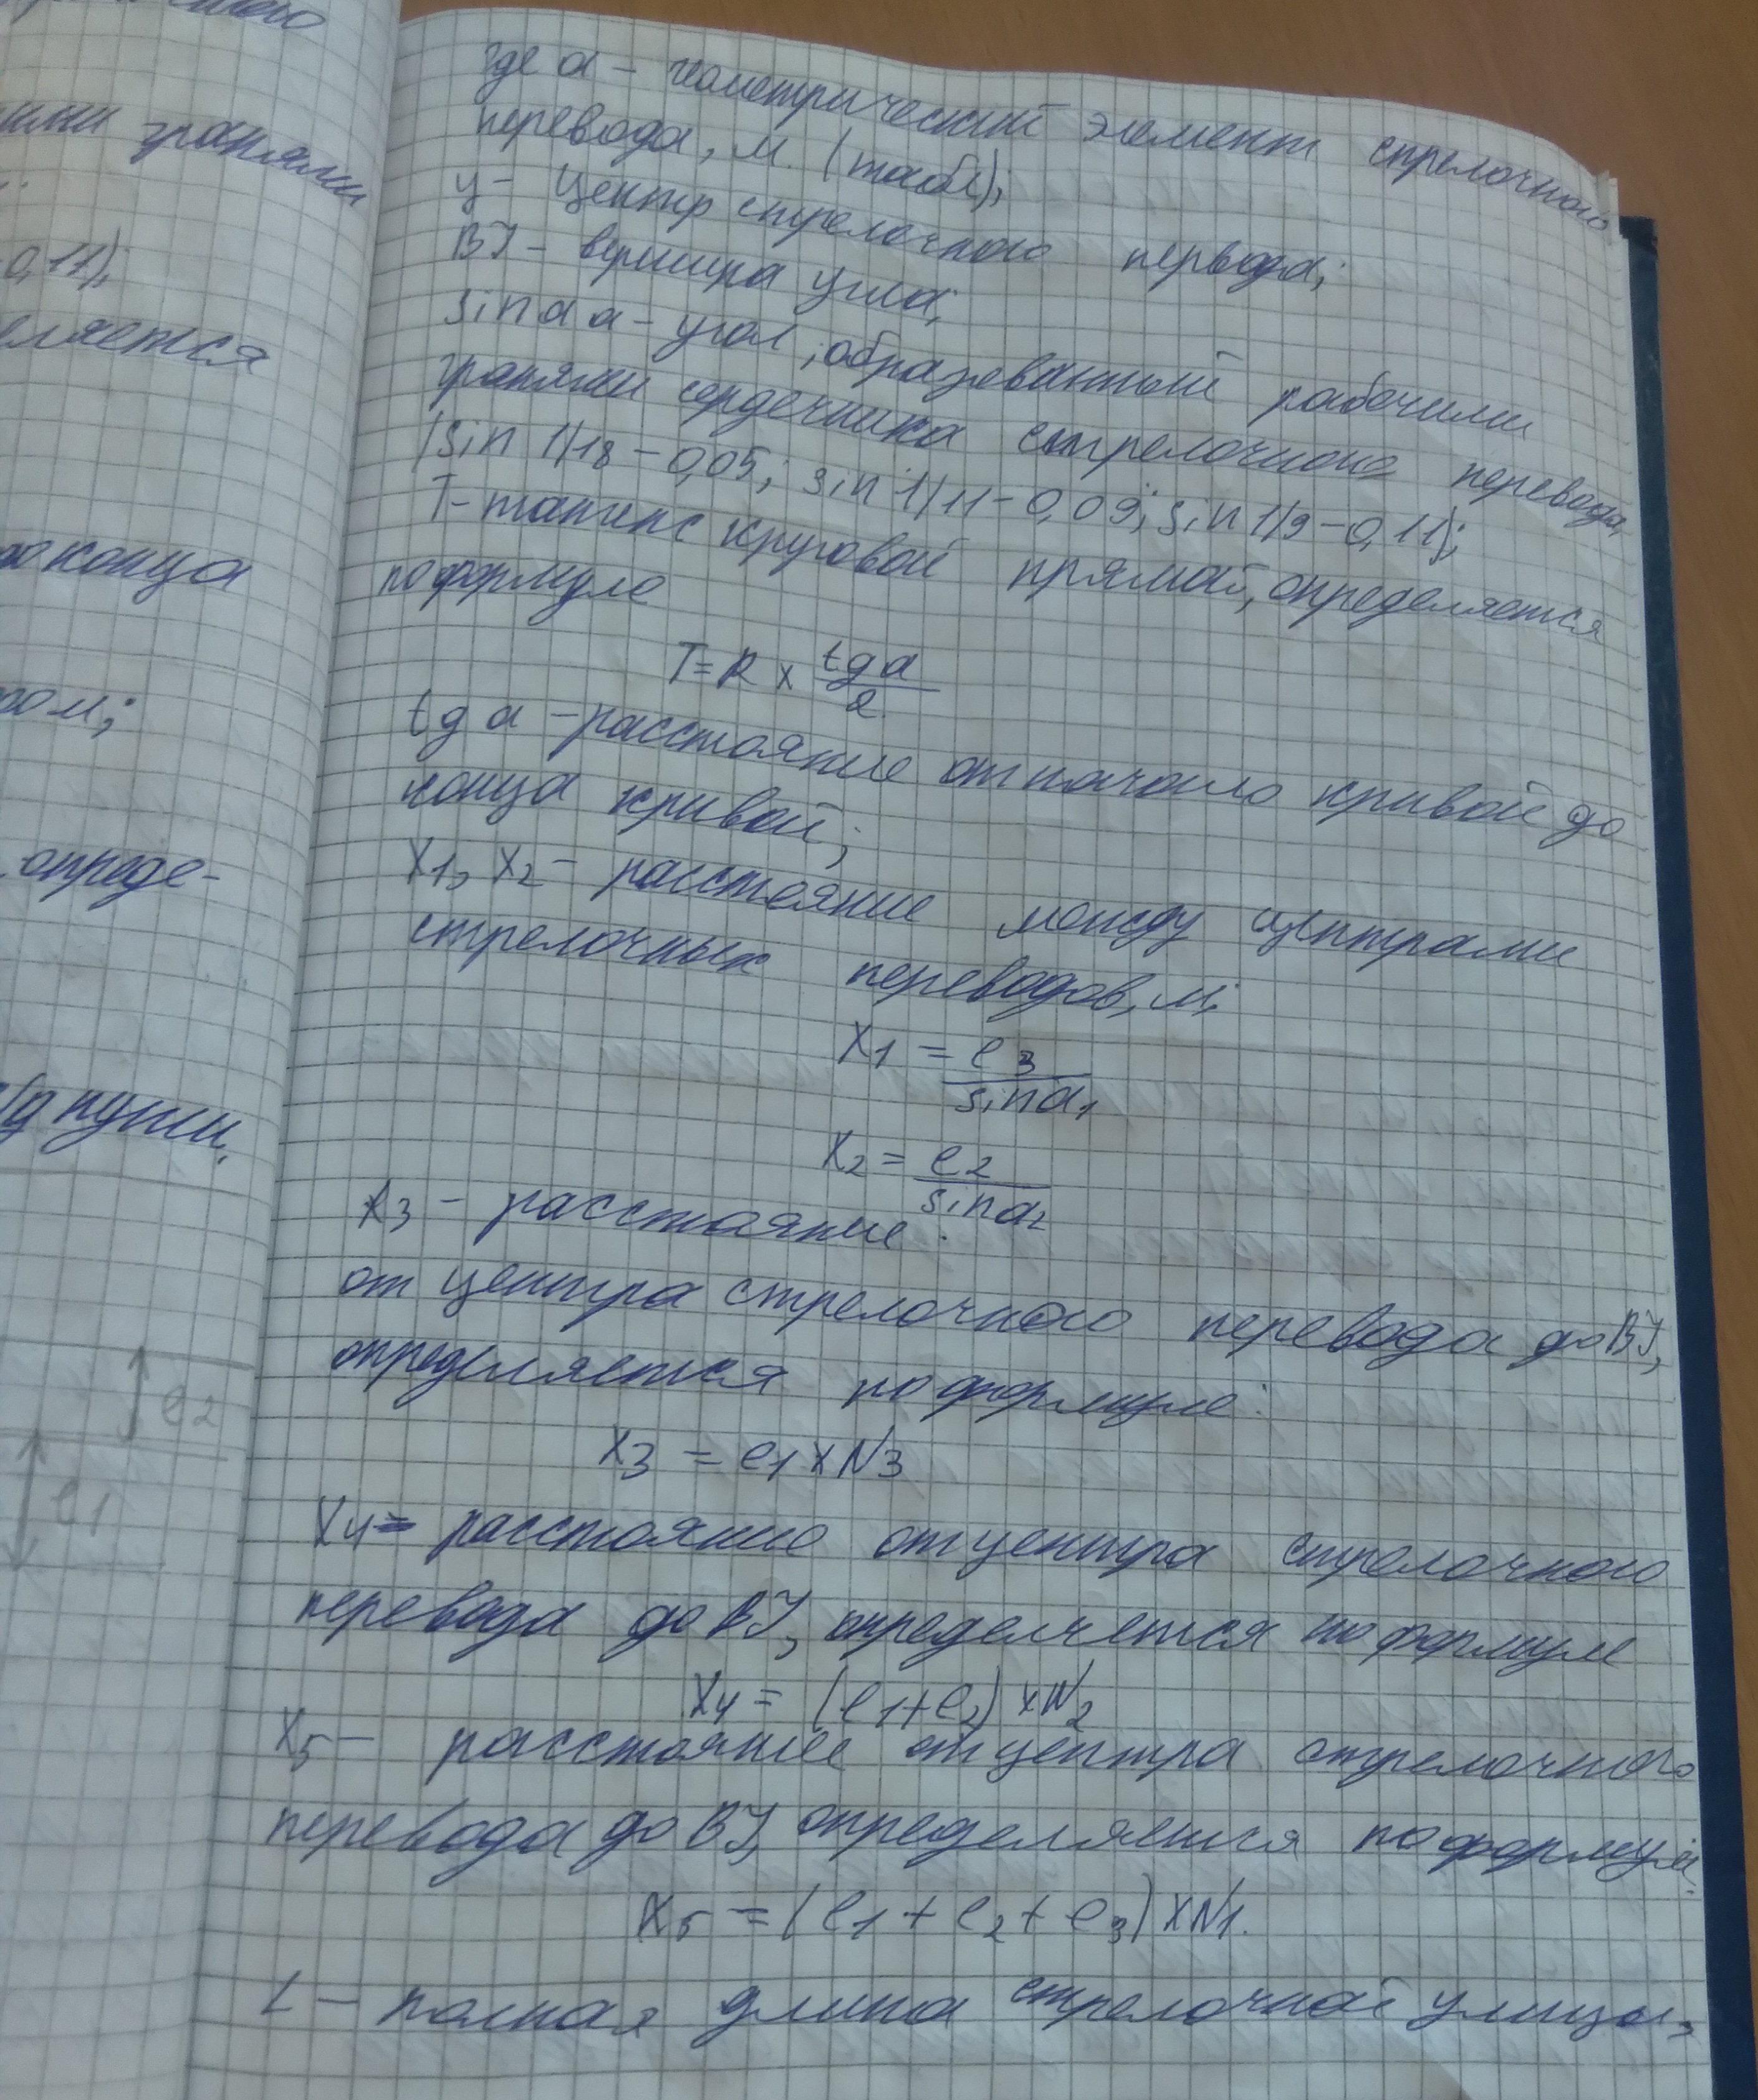 ими гранями
0,11);
еляется
до конца
ром;
опреде-
/д пути,
e2
e1
где a - геометрический элемент стрелочного
перевода, м. (табл);
у - центр стрелочного перевода;
ВУ - вершира угла;
sin d a - угол, образованный рабочими
гранями сердечника стрелочного перевода
(sin 1/18 - 0,05; sin 1/11 - 0,09; sin 1/9 - 0,11);
T - тангенс круговой прямой, определяется
по формуле
T = R x tg a / 2
tg a - расстояние от начало кривой до
конца кривой;
X1, X2 - расстояние между центрами
стрелочных переводов, м;
X1 = e3 / sin a1
X2 = e2 / sin a2
X3 - расстояние
от центра стрелочного перевода до ВУ,
определяется по формуле:
X3 = e1 x N3
X4 = расстояние от центра стрелочного
перевода до ВУ, определяется по формуле
X4 = (e1 + e2) x N2
X5 - расстояние от центра стрелочного
перевода до ВУ, определяется по формуле:
X5 = (e1 + e2 + e3) x N1.
L - полная длина стрелочной улицы,